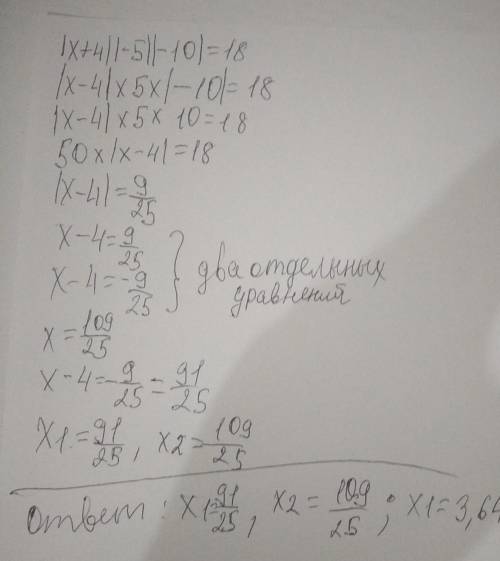 |x+4||-5||-10|=18
|x-4|×5×|-10|=18
|x-4|×5×10=18
50×|x-4|=18
|x-4|=9/25
x-4=9/25
x-4=-9/25 } два отдельных уравнений
x=109/25
x-4=-9/25=91/25
x1=91/25, x2=109/25
Ответ: x1=91/25, x2=109/25; x1=3,64